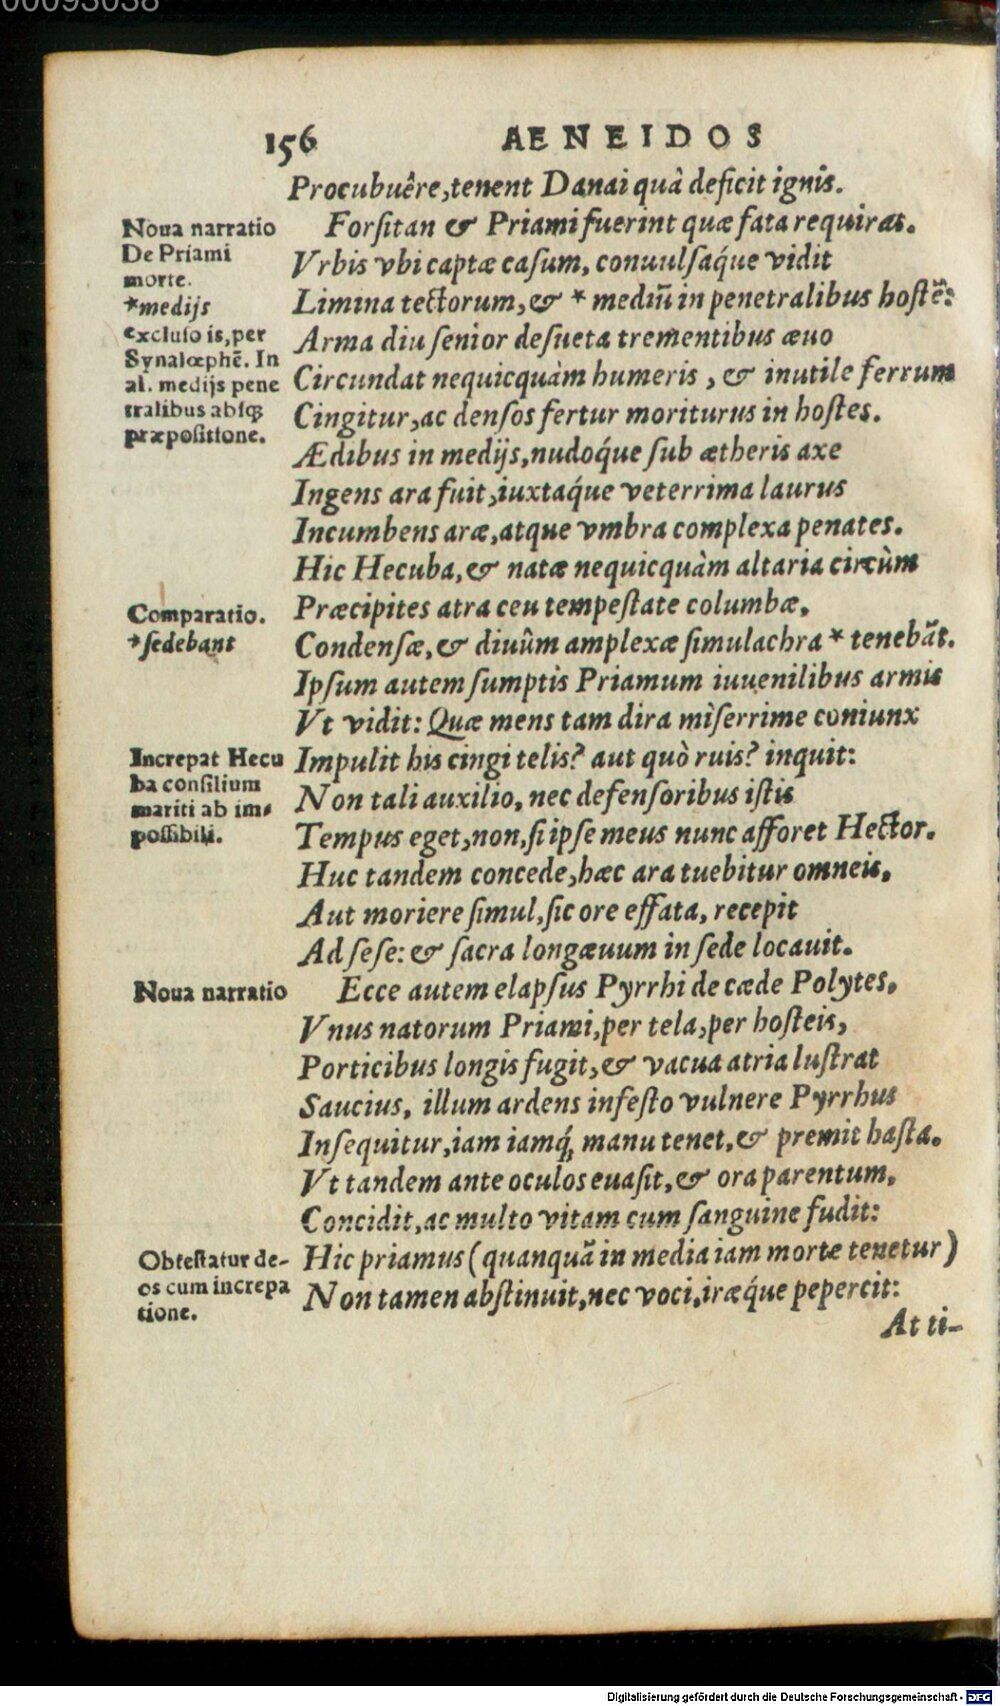 00093038
156
AENEIDOS
Procubuêre, tenent Danai quà deficit ignis.
Noua narratio
De Priami
morte.
*medijs
excluso is, per
Synalœphẽ. In
al. medijs pene
tralibus absq;
præpositione.
Forsitan & Priami fuerint quæ fata requiras.
Vrbis vbi captæ casum, conuulsaq́ue vidit
Limina tectorum, & * mediũ in penetralibus hostẽ:
Arma diu senior desueta trementibus æuo
Circundat nequicquàm humeris, & inutile ferrum
Cingitur, ac densos fertur moriturus in hostes.
Ædibus in medijs, nudoq́ue sub ætheris axe
Ingens ara fuit, iuxtaq́ue veterrima laurus
Incumbens aræ, atque vmbra complexa penates.
Hic Hecuba, & natæ nequicquàm altaria circùm
Comparatio.
*sedebant
Præcipites atra ceu tempestate columbæ,
Condensæ, & diuûm amplexæ simulachra * tenebãt.
Ipsum autem sumptis Priamum iuuenilibus armis
Vt vidit: Quæ mens tam dira miserrime coniunx
Increpat Hecu
ba consilium
mariti ab im-
possibili.
Impulit his cingi telis? aut quò ruis? inquit:
Non tali auxilio, nec defensoribus istis
Tempus eget, non, si ipse meus nunc afforet Hector.
Huc tandem concede, hæc ara tuebitur omneis,
Aut moriere simul, sic ore effata, recepit
Ad sese: & sacra longæuum in sede locauit.
Noua narratio
Ecce autem elapsus Pyrrhi de cæde Polytes,
Vnus natorum Priami, per tela, per hosteis,
Porticibus longis fugit, & vacua atria lustrat
Saucius, illum ardens infesto vulnere Pyrrhus
Insequitur, iam iamq́; manu tenet, & premit hasta.
Vt tandem ante oculos euasit, & ora parentum,
Concidit, ac multo vitam cum sanguine fudit:
Obtestatur de-
os cum increpa
tione.
Hic priamus (quanquã in media iam morte tenetur)
Non tamen abstinuit, nec voci, iræq́ue pepercit:
At ti-
Digitalisierung gefördert durch die Deutsche Forschungsgemeinschaft - DFG